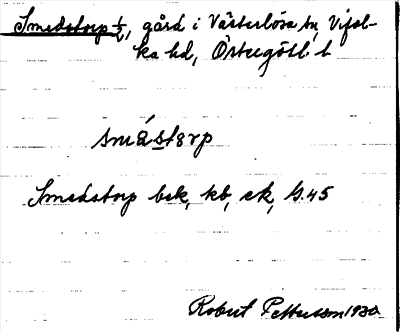 Smedstorp 1/2, gård i Västerlösa sn, Vifol-
ka hd, Östergötl. l
smástorp
Smedstorp bsk, kb, ek, G.45
Robert Pettersson 1930